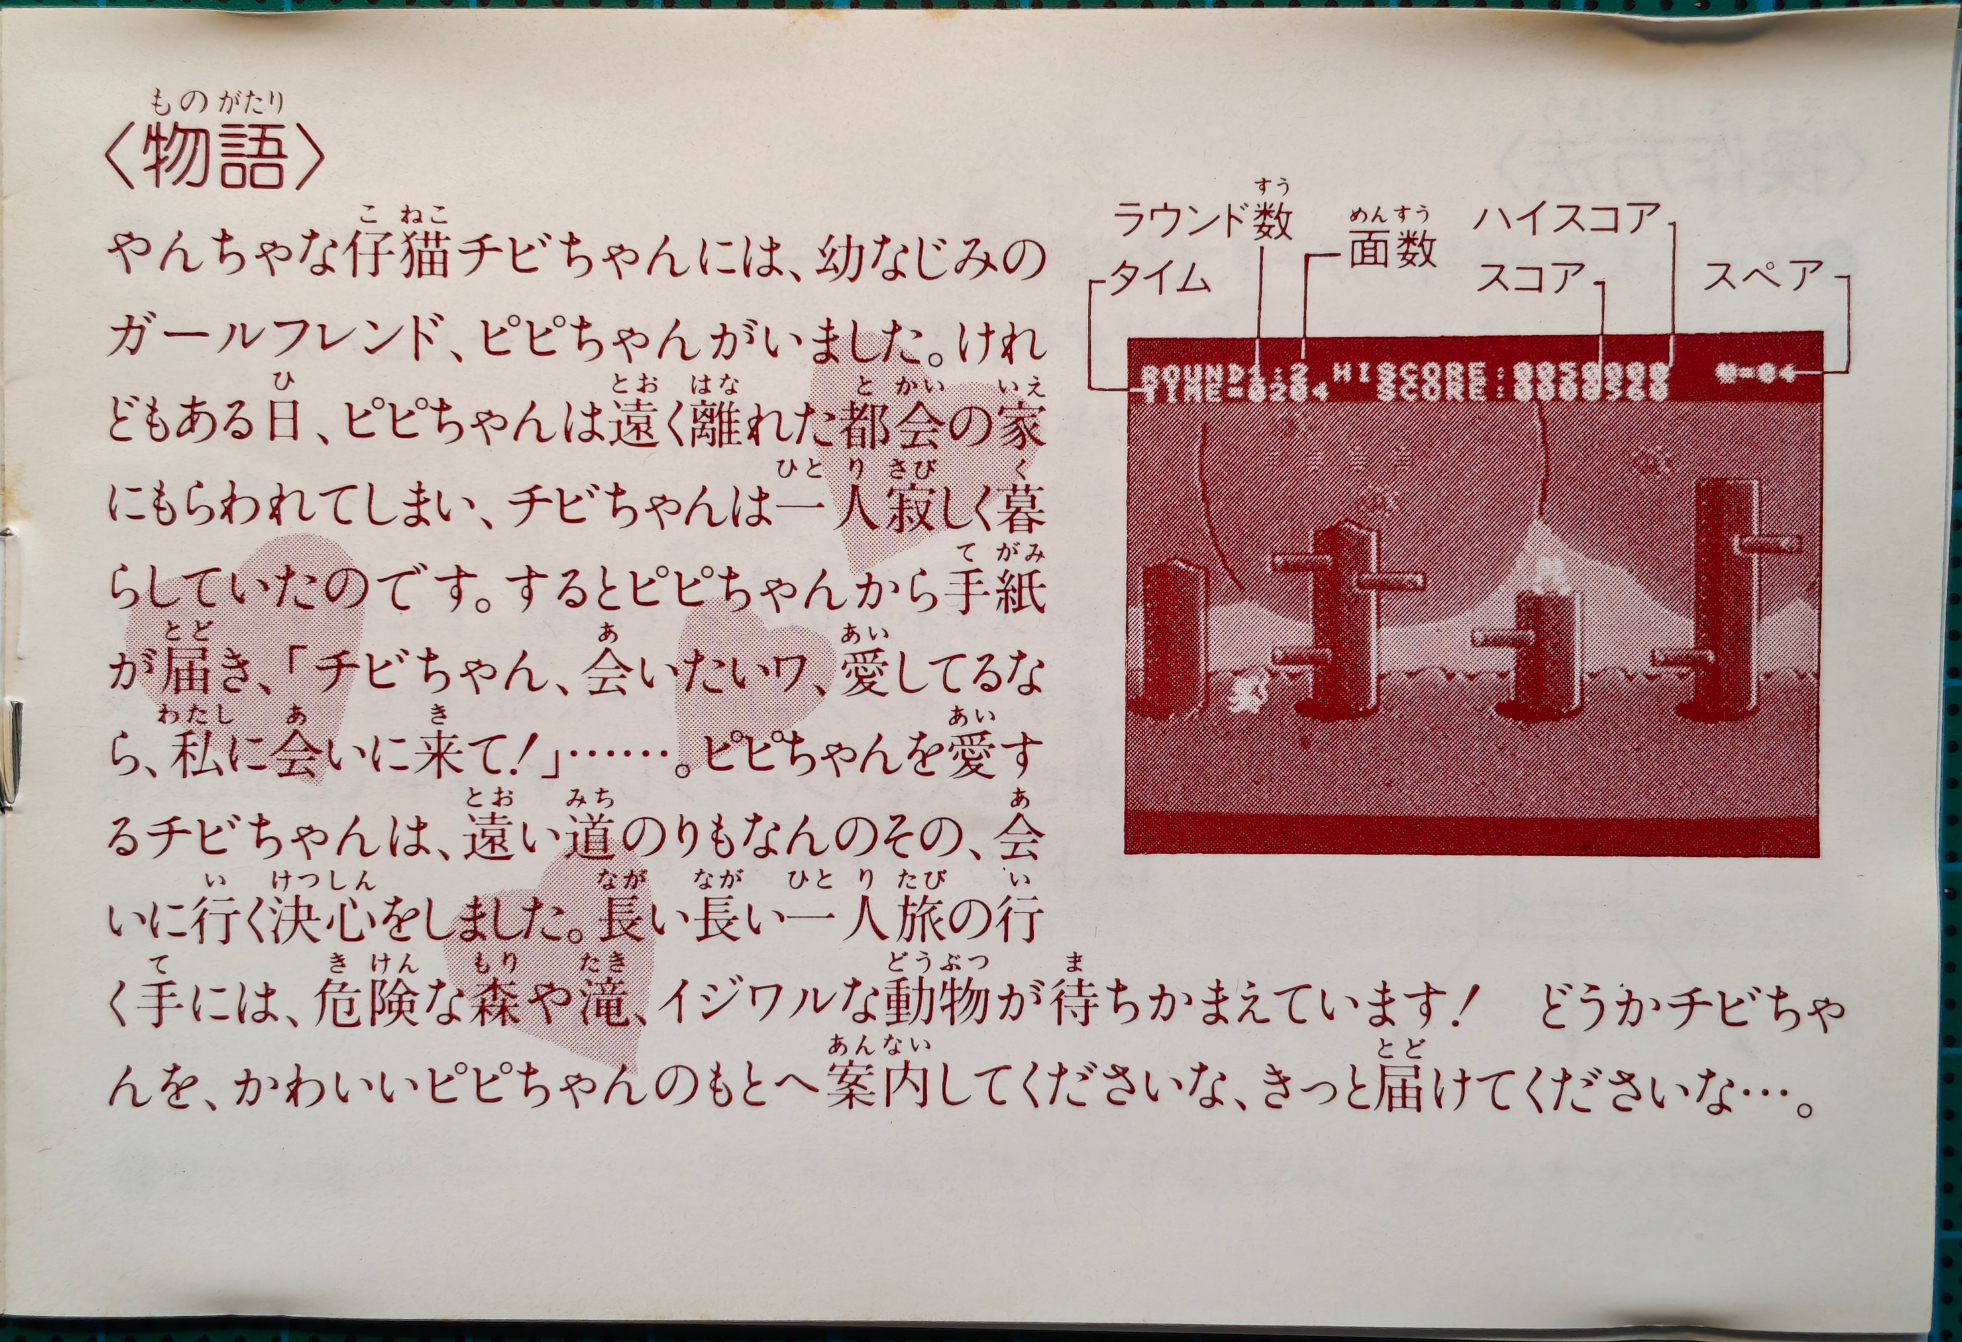 〈物語〉
やんちゃな仔猫チビちゃんには、幼なじみの
ガールフレンド、ピピちゃんがいました。けれ
どもある日、ピピちゃんは遠く離れた都会の家
にもらわれてしまい、チビちゃんは一人寂しく暮
らしていたのです。するとピピちゃんから手紙
が届き、「チビちゃん、会いたいワ、愛してるな
ら、私に会いに来て!」……。ピピちゃんを愛す
るチビちゃんは、遠い道のりもなんのその、会
いに行く決心をしました。長い長い一人旅の行
く手には、危険な森や滝、イジワルな動物が待ちかまえています! どうかチビちゃ
んを、かわいいピピちゃんのもとへ案内してくださいな、きっと届けてくださいな…。
ラウンド数
面数
ハイスコア
タイム
スコア
スペア
ROUND1:2 HISCORE:0050000
TIME=0204 SCORE:0000560